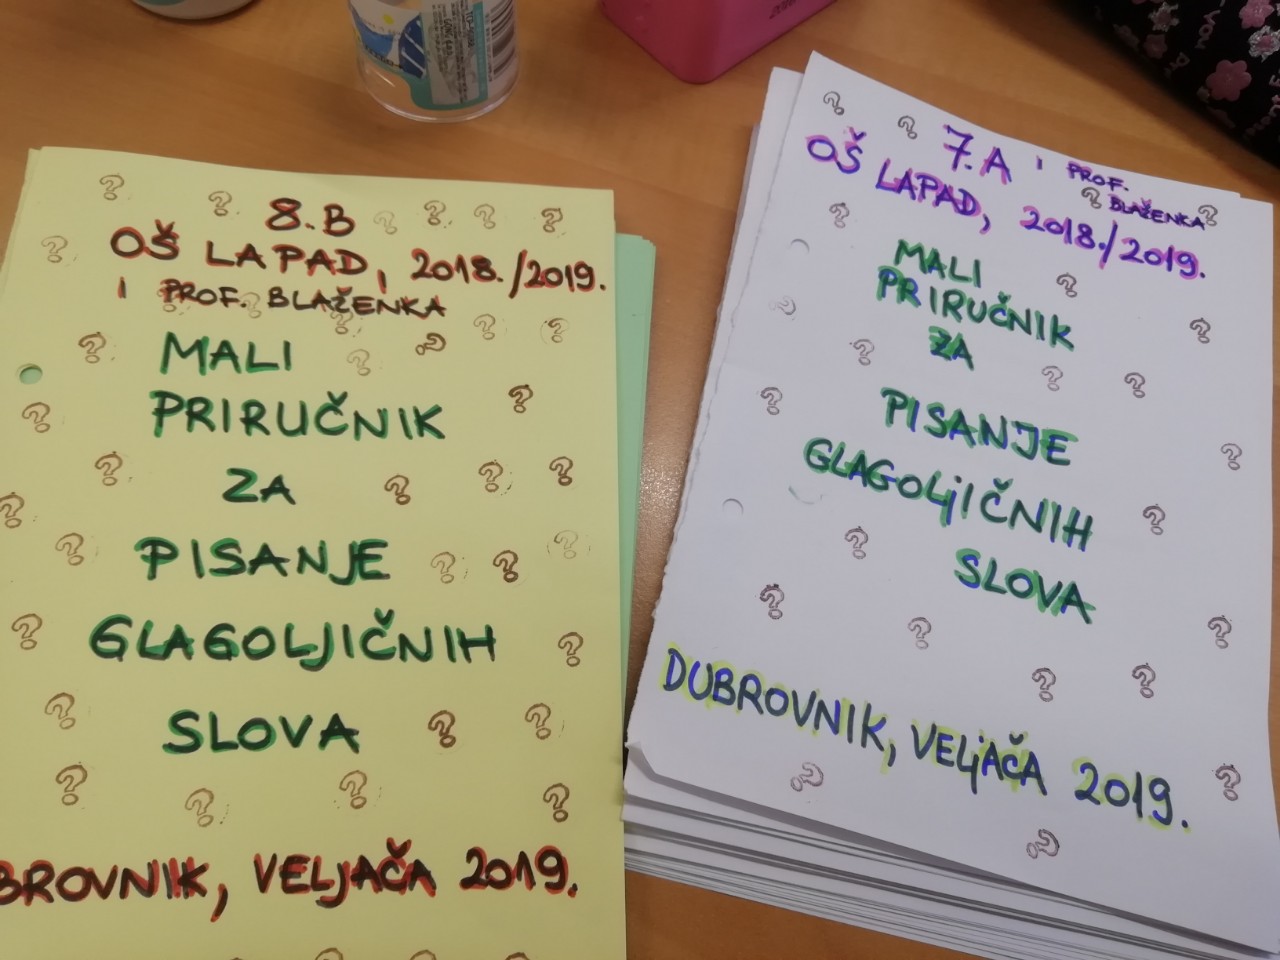 8.B
OŠ LAPAD, 2018./2019.
I PROF. BLAŽENKA
MALI
PRIRUČNIK
ZA
PISANJE
GLAGOLJIČNIH
SLOVA
BROVNIK, VELJAČA 2019.
7.A I PROF.
BLAŽENKA
OŠ LAPAD, 2018./2019.
MALI
PRIRUČNIK
ZA
PISANJE
GLAGOLJIČNIH
SLOVA
DUBROVNIK, VELJAČA 2019.